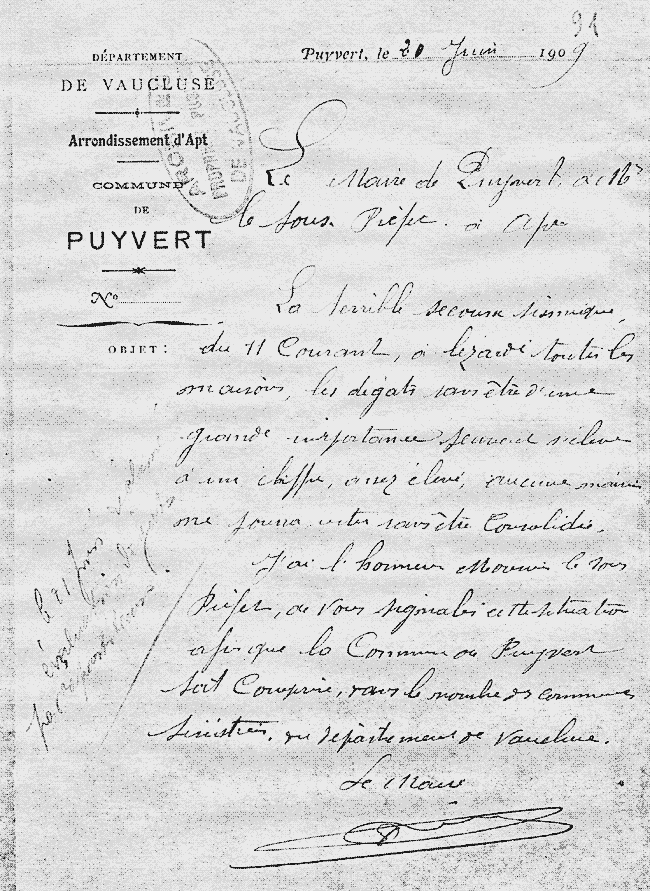 91
DÉPARTEMENT
DE VAUCLUSE
Arrondissement d'Apt
COMMUNE
DE
PUYVERT
N°
OBJET :
Puyvert, le 20 Juin 1909
Le Maire de Puyvert, à Mr
le Sous Préfet à Apt
La terrible secousse sismique,
du 11 Courant, à lezardé toutes les
maisons, les dégats sans être d'une
grande importance peuvent s'élever
à un chiffre, assez élevé, aucune maison
ne pourra rester sans être Consolidée.
J'ai l'honneur Monsieur le Sous
Préfet, de vous signaler cette situation
afin que la Commune de Puyvert
soit Comprise, dans le nombre des communes
Sinistrées, du département de Vaucluse.
Le Maire